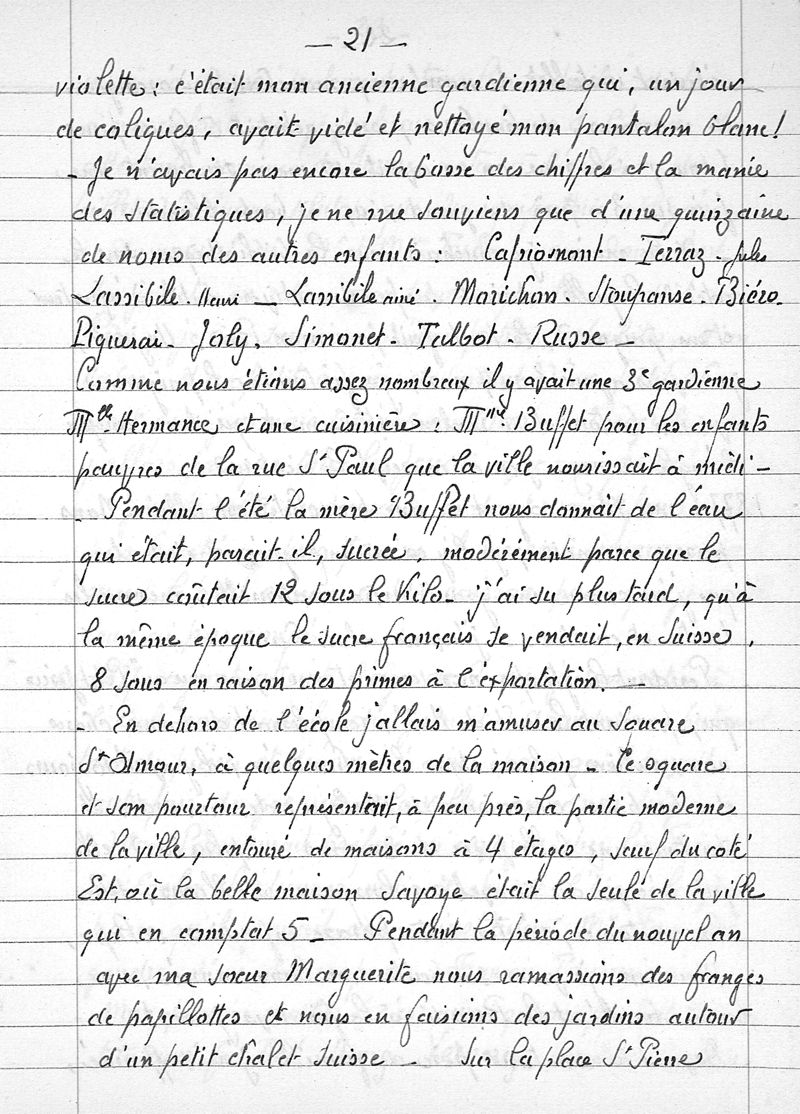 — 21 —
violette : c'était mon ancienne gardienne qui, un jour
de coliques, avait vidé et nettoyé mon pantalon blanc !
- Je n'avais pas encore la bosse des chiffres et la manie
des statistiques, je ne me souviens que d'une quinzaine
de noms des autres enfants : Capriomont - Terraz - Jules
Lassibile - Henri — Lassibile ainé - Morichon - Stoupanse - Biéro -
Piguerai - Joly - Simonet - Talbot - Russe —
Comme nous étions assez nombreux il y avait une 3e gardienne
Mlle Hermance et une cuisinière : Mme Buffet pour les enfants
pauvres de la rue St Paul que la ville nourissait à midi -
- Pendant l'été la mère Buffet nous donnait de l'eau
qui était, parait-il, sucrée, modérément parce que le
sucre coûtait 12 sous le Kilo - j'ai su plus tard, qu'à
la même époque le sucre français se vendait, en Suisse,
8 sous en raison des primes à l'exportation. —
- En dehors de l'école j'allais m'amuser au Square
St Amour, à quelques mètres de la maison - Ce square
et son pourtour représentait, à peu près, la partie moderne
de la ville, entouré de maisons à 4 étages, sauf du coté
Est, où la belle maison Savoye était la seule de la ville
qui en comptat 5 - Pendant la période du nouvel an
avec ma soeur Marguerite nous ramassions des franges
de papillottes et nous en faisions des jardins autour
d'un petit chalet Suisse - Sur la place St Pierre